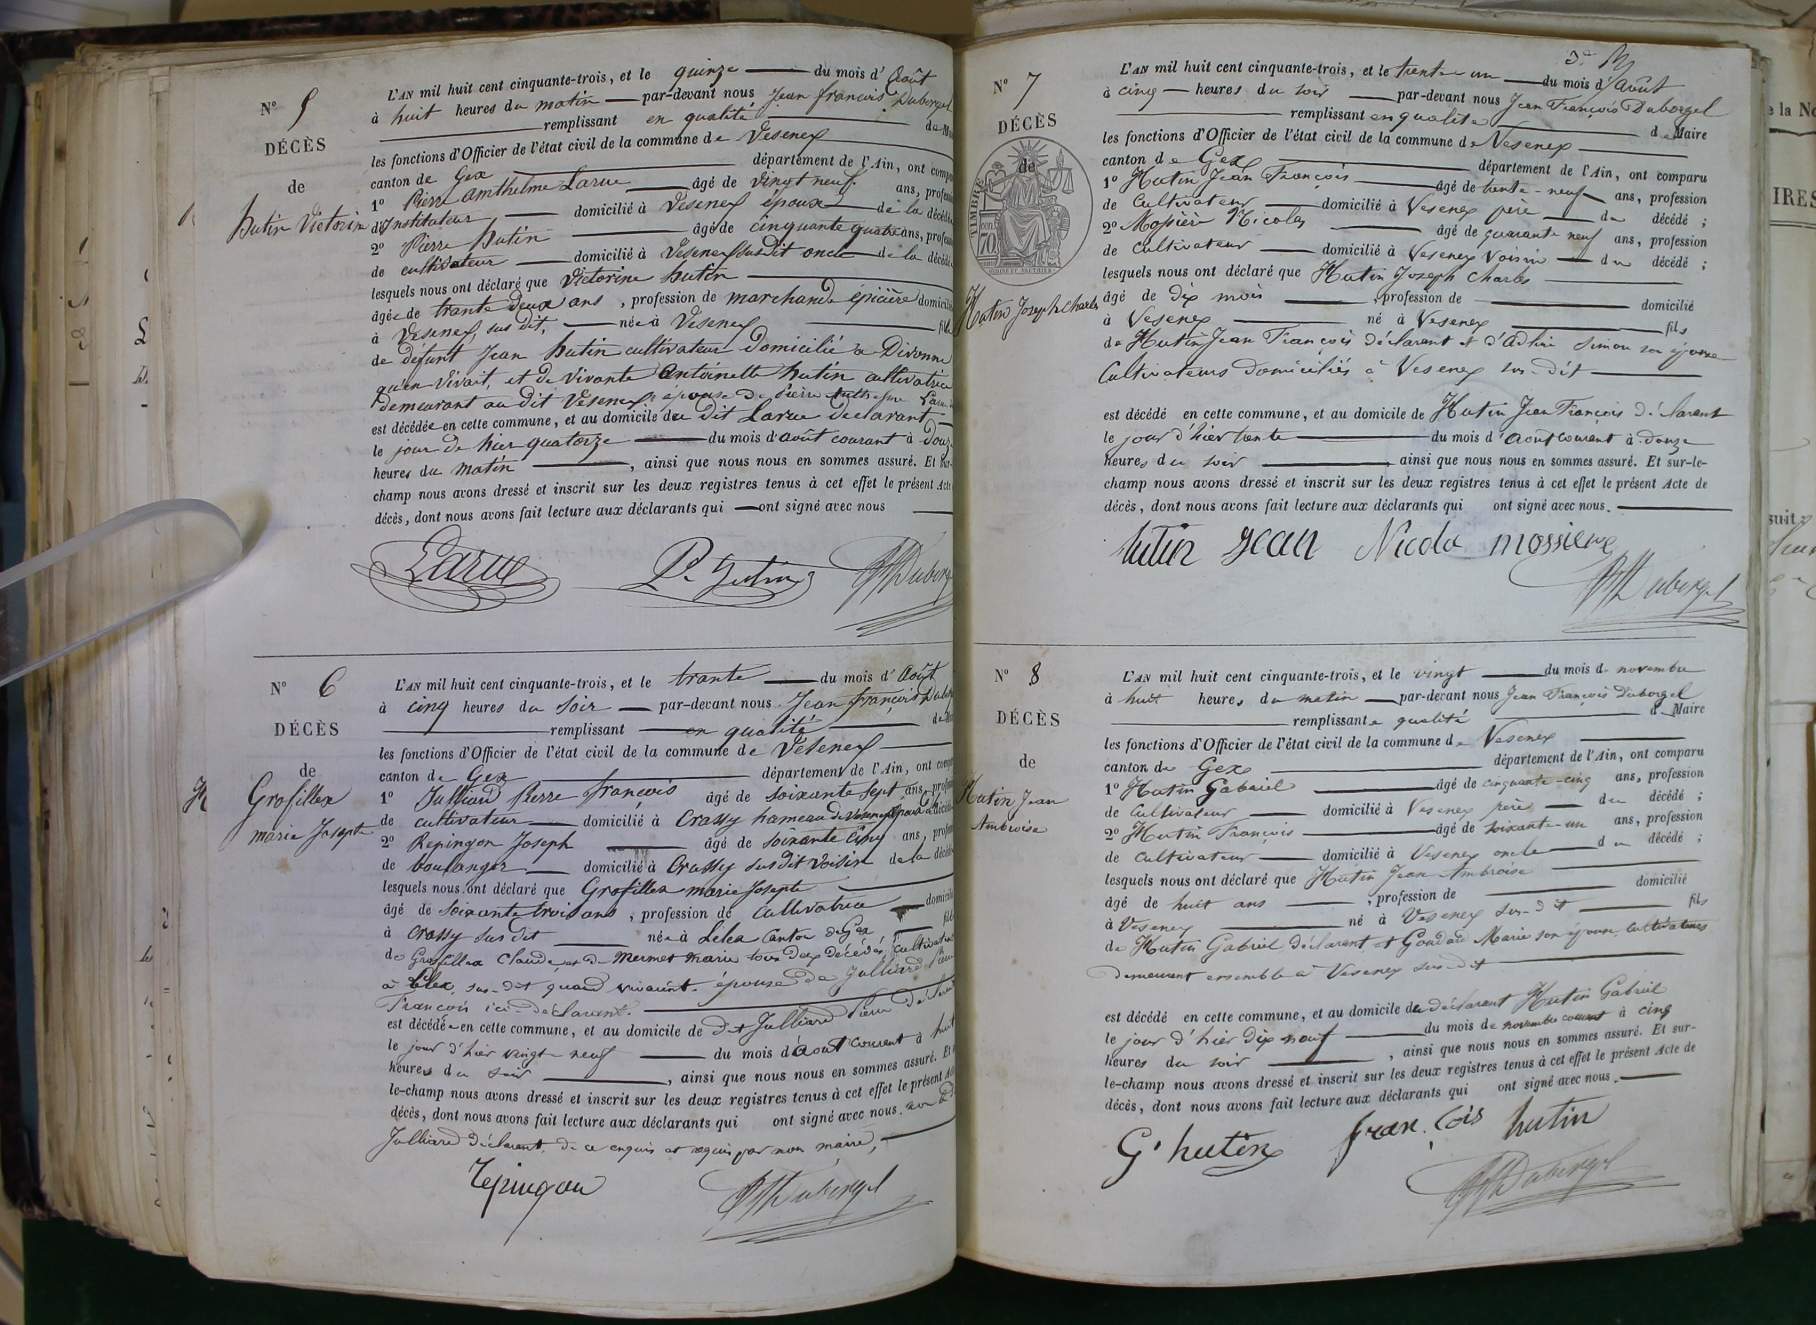 N° 5
DÉCÈS
de
hutin Victorine
L'AN mil huit cent cinquante-trois, et le quinze du mois d' Août
à huit heures du matin par-devant nous Jean françois Duborgel
remplissant en qualité de
les fonctions d'Officier de l'état civil de la commune de Vesenex
canton de Gex département de l'Ain, ont
1° Pierre anthelme Larue âgé de vingt neuf ans,
d'Instituteur domicilié à Vesenex époux de la
2° Pierre hutin âgé de cinquante quatre ans,
de cultivateur domicilié à Vesenex susdit oncle de la
lesquels nous ont déclaré que Victorine hutin
âgée de trante deux ans, profession de marchande épicière
à Vesenex, sus dit, née à Vesenex
de défunt Jean hutin cultivateur domicilié à Divonne
quan vivait, et de vivante antoinette hutin cultivatrice
demeurant au dit Vesenex, epouse de pierre Anthelme
est décédée en cette commune, et au domicile du dit Larue declarant
le jour de hier quatorze du mois d'août courant à
heures du matin, ainsi que nous nous en sommes assuré. Et sur-
champ nous avons dressé et inscrit sur les deux registres tenus à cet effet le présent Acte
décès, dont nous avons fait lecture aux déclarants qui ont signé avec nous
Larue P. hutin
N° 6
DÉCÈS
de
Grosfillex
marie Josepte
L'AN mil huit cent cinquante-trois, et le trante du mois d' Août
à cinq heures du soir par-devant nous Jean françois
remplissant en qualité
les fonctions d'Officier de l'état civil de la commune de Vesenex
canton de Gex département de l'Ain, ont
1° Julliard Pierre françois âgé de soixante sept ans,
de cultivateur domicilié à Crassy hameau de Vesenex époux
2° Repingon Joseph âgé de soixante cinq ans,
de boulanger domicilié à Crassy susdit voisin de la
lesquels nous ont déclaré que Grosfillex marie Josepte
âgé de soixante trois ans, profession de cultivatrice
à Crassy sus dit née à Lelex canton de Gex
de Grosfillex Claude et de Mermet marie tous deux décédés, cultivateurs
à Lelex, sus-dit, quand vivaient. épouse de Julliard Pierre
François ici déclarant.
est décédée en cette commune, et au domicile de dit Julliard Pierre
le jour d'hier vingt-neuf du mois d'août courent à huit
heures du soir, ainsi que nous nous en sommes assuré.
le-champ nous avons dressé et inscrit sur les deux registres tenus à cet effet le présent
décès, dont nous avons fait lecture aux déclarants qui ont signé avec nous.
Julliard déclarant de ce enquis et requis par nous maire,
repingon Duborgel
N° 7
DÉCÈS
de
Hutin Joseph Charles
TIMBRE
70
L'AN mil huit cent cinquante-trois, et le trente un du mois d'août
à cinq heures du soir par-devant nous Jean François Duborgel
remplissant en qualité de Maire
les fonctions d'Officier de l'état civil de la commune de Vesenex
canton de Gex département de l'Ain, ont comparu
1° Hutin Jean François âgé de trente-neuf ans, profession
de Cultivateur domicilié à Vesenex père du décédé ;
2° Mossière Nicolas âgé de quarante neuf ans, profession
de cultivateur domicilié à Vesenex voisin du décédé ;
lesquels nous ont déclaré que Hutin Joseph Charles
âgé de dix mois, profession de domicilié
à Vesenex né à Vesenex fils
de Hutin Jean François déclarent et d'Adline Simon son épouse
Cultivateurs domiciliés à Vesenex sus-dit
est décédé en cette commune, et au domicile de Hutin Jean François déclarent
le jour d'hier trente du mois d'août courent à douze
heures du soir, ainsi que nous nous en sommes assuré. Et sur-le-
champ nous avons dressé et inscrit sur les deux registres tenus à cet effet le présent Acte de
décès, dont nous avons fait lecture aux déclarants qui ont signé avec nous.
hutin jean Nicola mossiere
Duborgel
N° 8
DÉCÈS
de
Hutin Jean
Ambroise
L'AN mil huit cent cinquante-trois, et le vingt du mois de novembre
à huit heures du matin par-devant nous Jean François Duborgel
remplissant qualité de Maire
les fonctions d'Officier de l'état civil de la commune de Vesenex
canton de Gex département de l'Ain, ont comparu
1° Hutin Gabriel âgé de cinquante-cinq ans, profession
de Cultivateur domicilié à Vesenex père du décédé ;
2° Hutin François âgé de soixante-un ans, profession
de Cultivateur domicilié à Vesenex oncle du décédé ;
lesquels nous ont déclaré que Hutin Jean-Ambroise
âgé de huit ans, profession de domicilié
à Vesenex né à Vesenex sus-dit fils
de Hutin Gabriel déclarent et Goudau Marie son épouse, cultivateurs
demeurent ensemble à Vesenex sus-dit
est décédé en cette commune, et au domicile du déclarent Hutin Gabriel
le jour d'hier dix neuf du mois de novembre courent à cinq
heures du soir, ainsi que nous nous en sommes assuré. Et sur-
le-champ nous avons dressé et inscrit sur les deux registres tenus à cet effet le présent Acte de
décès, dont nous avons fait lecture aux déclarants qui ont signé avec nous.
G. hutin françois hutin
Duborgel